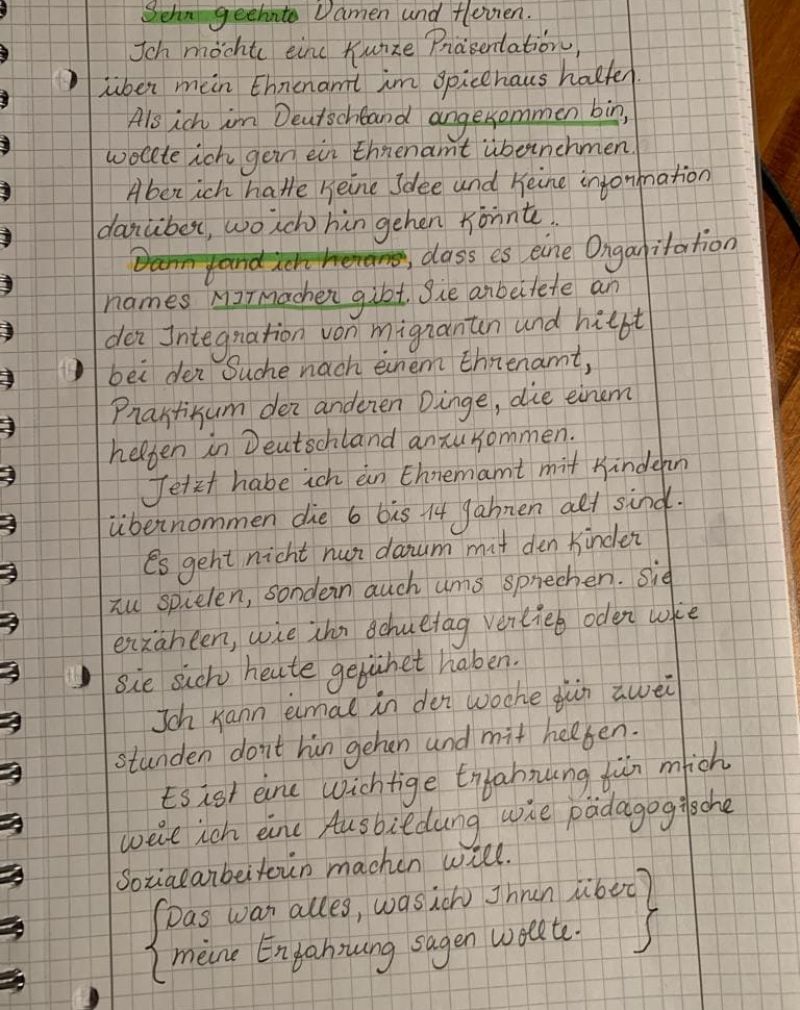 Sehr geehrte Damen und Herren.
Ich möchte eine Kurze Präsentation,
über mein Ehrenamt im Spielhaus halten.
Als ich im Deutschland angekommen bin,
wollte ich gern ein Ehrenamt übernehmen.
Aber ich hatte Keine Idee und Keine information
darüber, wo ich hin gehen Könnte..
Dann fand ich heraus, dass es eine Organitation
names MITMacher gibt. Sie arbeitete an
der Integration von migranten und hilft
bei der Suche nach einem Ehrenamt,
Praktikum der anderen Dinge, die einem
helfen in Deutschland anzukommen.
Jetzt habe ich ein Ehremamt mit Kindern
übernommen die 6 bis 14 Jahren alt sind.
Es geht nicht nur darum mit den Kinder
zu spielen, sondern auch ums sprechen. Sie
erzählen, wie ihr Schultag verlief oder wie
sie sich heute gefühlt haben.
Ich kann eimal in der woche für zwei
stunden dort hin gehen und mit helfen.
Es ist eine wichtige Erfahrung für mich
weil ich eine Ausbildung wie pädagogische
Sozialarbeiterin machen will.
{Das war alles, was ich Ihnen über}
{meine Erfahrung sagen wollte.}